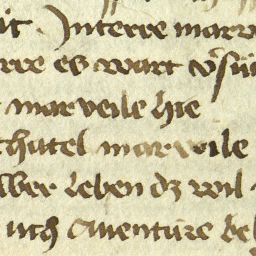 it · Interre marv
rre es wart v'sü
marveile hie
chatel marveile
lber leben dz wil
uch aventure be